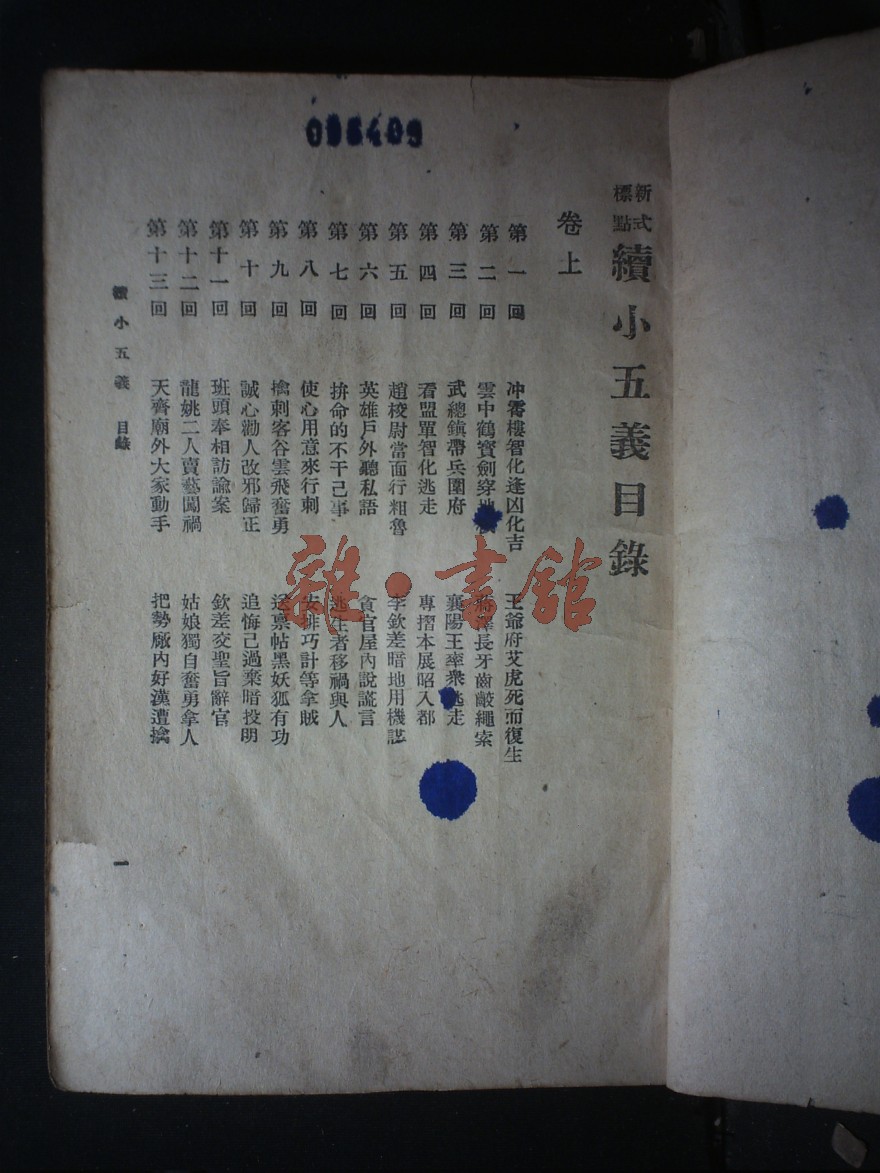 095409
新式標點 續小五義目錄
卷上
第一回 冲霄樓智化逢凶化吉 王爺府艾虎死而復生
第二回 雲中鶴寳劍穿地 長牙齒齩繩索
第三回 武總鎮帶兵圍府 襄陽王率衆逃走
第四回 看盟單智化逃走 專摺本展昭入都
第五回 趙校尉當面行粗魯 李欽差暗地用機謀
第六回 英雄戶外聽私語 貪官屋內說謊言
第七回 拚命的不干己事 逃生者移禍與人
第八回 使心用意來行刺 安排巧計等拿賊
第九回 擒刺客谷雲飛奮勇 送禀帖黑妖狐有功
第十回 誠心勸人改邪歸正 追悔己過棄暗投明
第十一回 班頭奉相訪諭案 欽差交聖旨辭官
第十二回 龍姚二人賣藝闖禍 姑娘獨自奮勇拿人
第十三回 天齊廟外大家動手 把勢厰內好漢遭擒
續小五義 目錄
一
雜·書館